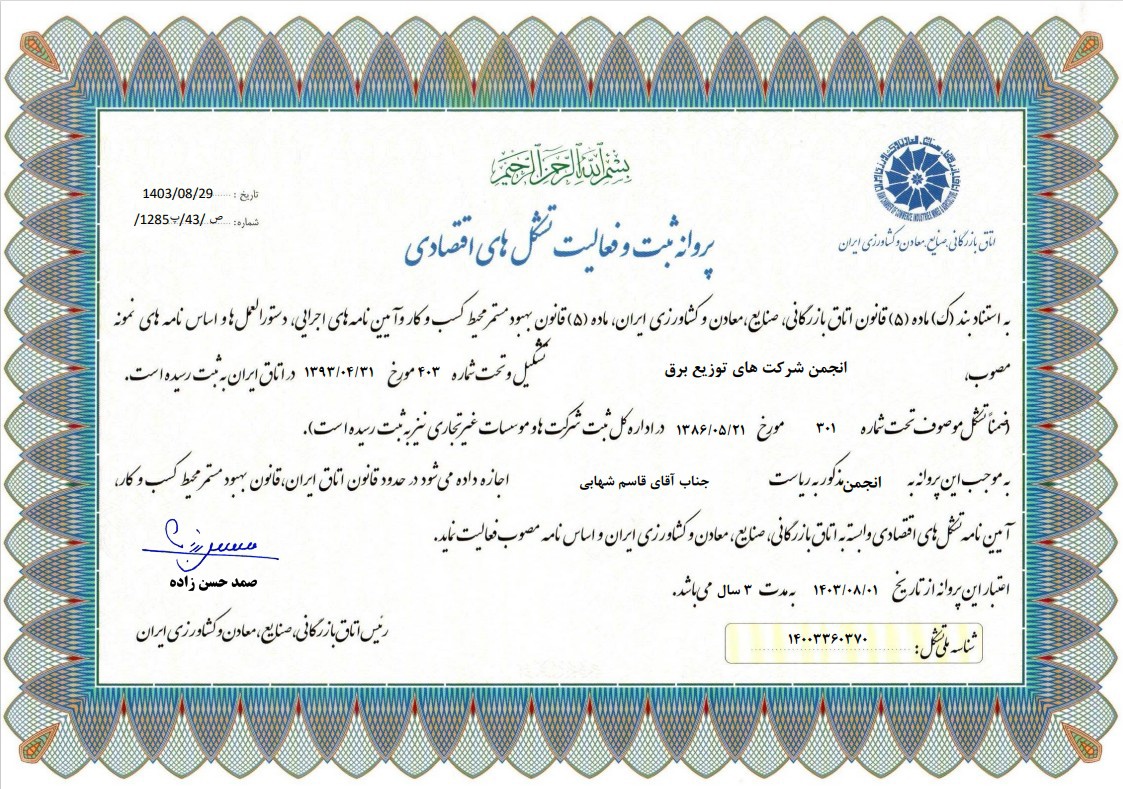 بسم الله الرحمن الرحیم
IRAN CHAMBER OF COMMERCE, INDUSTRIES, MINES & AGRICULTURE
اتاق بازرگانی، صنایع، معادن و کشاورزی ایران
تاریخ : 1403/08/29
شماره: ص /43/پ1285/
پروانه ثبت و فعالیت تشکل های اقتصادی
به استناد بند (ک) ماده (۵) قانون اتاق بازرگانی، صنایع، معادن و کشاورزی ایران، ماده (۵) قانون بهبود مستمر محیط کسب و کار و آیین نامه های اجرایی، دستورالعمل ها و اساس نامه های نمونه
مصوب، انجمن شرکت های توزیع برق تشکیل و تحت شماره ۴۰۳ مورخ ۱۳۹۳/۰۴/۳۱ در اتاق ایران به ثبت رسیده است.
(ضمناً تشکل موصوف تحت شماره ۳۰۱ مورخ ۱۳۸۶/۰۵/۲۱ در اداره کل ثبت شرکت ها و موسسات غیر تجاری نیز به ثبت رسیده است).
به موجب این پروانه به انجمن مذکور به ریاست جناب آقای قاسم شهابی اجازه داده می شود در حدود قانون اتاق ایران، قانون بهبود مستمر محیط کسب و کار،
آیین نامه تشکل های اقتصادی وابسته به اتاق بازرگانی، صنایع، معادن و کشاورزی ایران و اساس نامه مصوب فعالیت نماید.
اعتبار این پروانه از تاریخ ۱۴۰۳/۰۸/۰۱ به مدت ۳ سال می باشد.
صمد حسن زاده
رئیس اتاق بازرگانی، صنایع، معادن و کشاورزی ایران
شناسه ملی تشکل: ۱۴۰۰۳۳۶۰۳۷۰